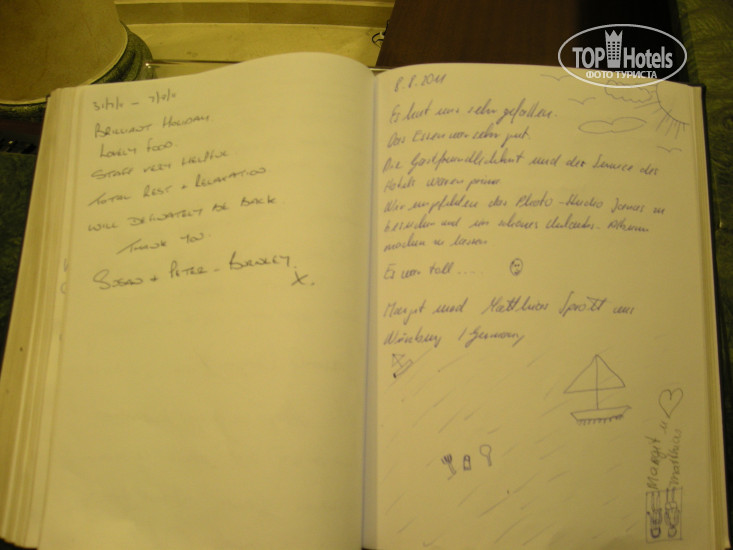 31/7/11 – 7/8/11
BRILLIANT HOLIDAY
LOVELY FOOD
STAFF VERY HELPFUL
TOTAL REST + RELAXATION
WILL DEFINATELY BE BACK.
THANK YOU.
SUSAN + PETER - BURNLEY.
X.
TOPHotels
ФОТО ТУРИСТА
8.8.2011
Es hat uns sehr gefallen.
Das Essen war sehr gut.
Die Gastfreundlichkeit und der Service des
Hotels waren prima
Wir empfehlen das Photo-Studio James zu
besuchen und ein schönes Urlaubs-Album
machen zu lassen
Es war toll.....
Margit und Matthias aus
Nürnberg / Germany
Margit u
Matthias